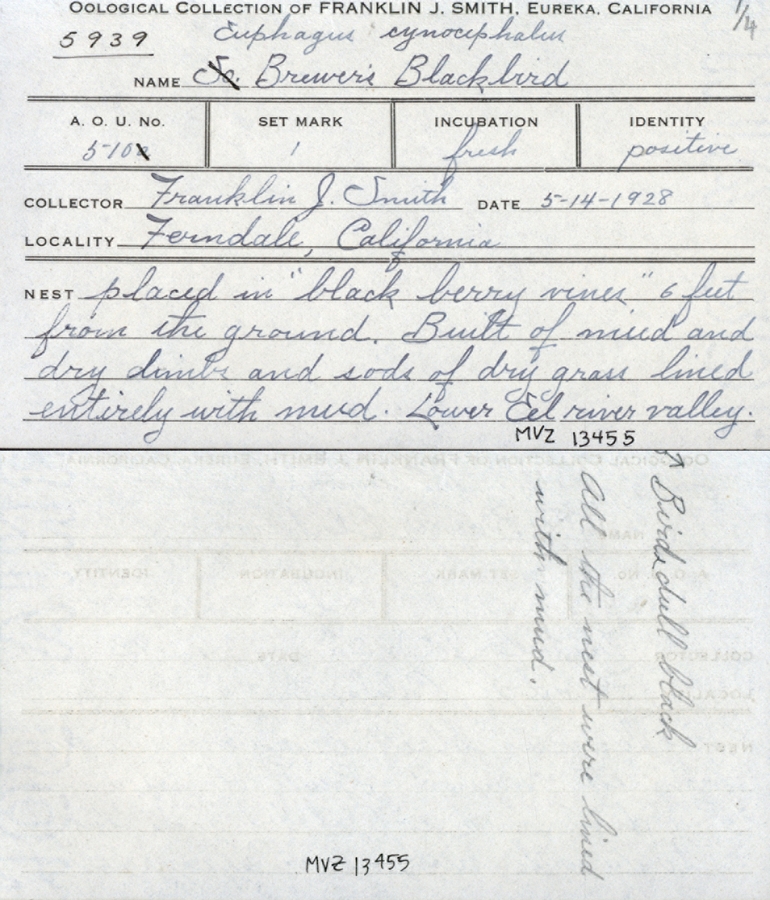 OOLOGICAL COLLECTION OF FRANKLIN J. SMITH, EUREKA, CALIFORNIA
1/4
5939 Euphagus cynocephalus
NAME Brewer's Blackbird
A. O. U. No. SET MARK INCUBATION IDENTITY
510 1 fresh positive
COLLECTOR Franklin J. Smith DATE 5-14-1928
LOCALITY Ferndale, California
NEST placed in "black berry vines" 6 feet
from the ground. Built of mud and
dry limbs and sods of dry grass lined
entirely with mud. Lower Eel river valley.
MVZ 13455
Birds dull black
All the nest were lined
with mud.
MVZ 13455